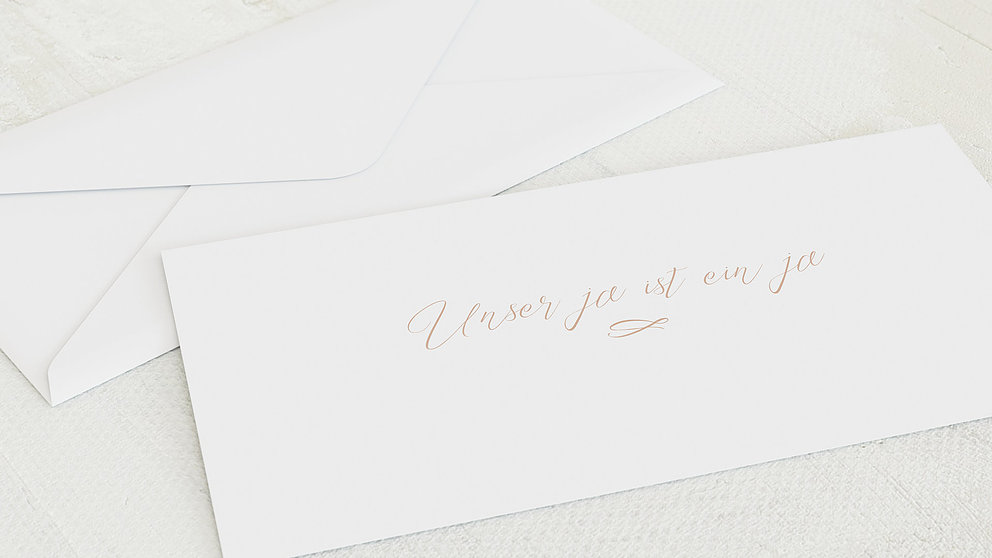 Unser ja ist ein ja